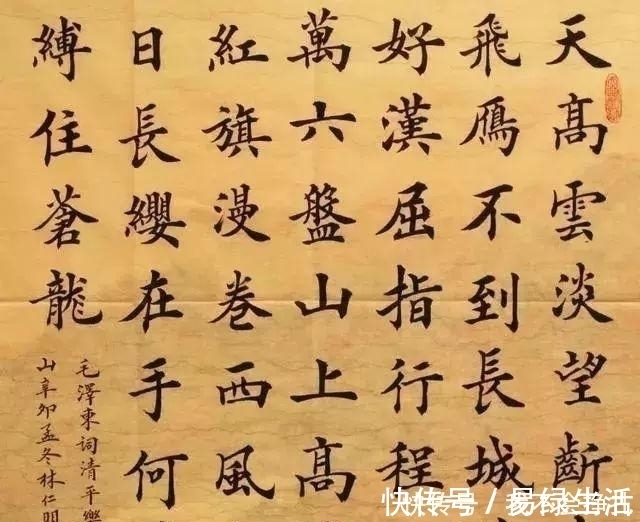 天髙雲淡望斷
飛鴈不到長城
好漢屈指行程
萬六盤山上髙
紅旗漫卷西風
日長纓在手何
縛住蒼龍
毛澤東詞清平樂
山辛卯孟冬林仁明
快传号 / 易绿生活